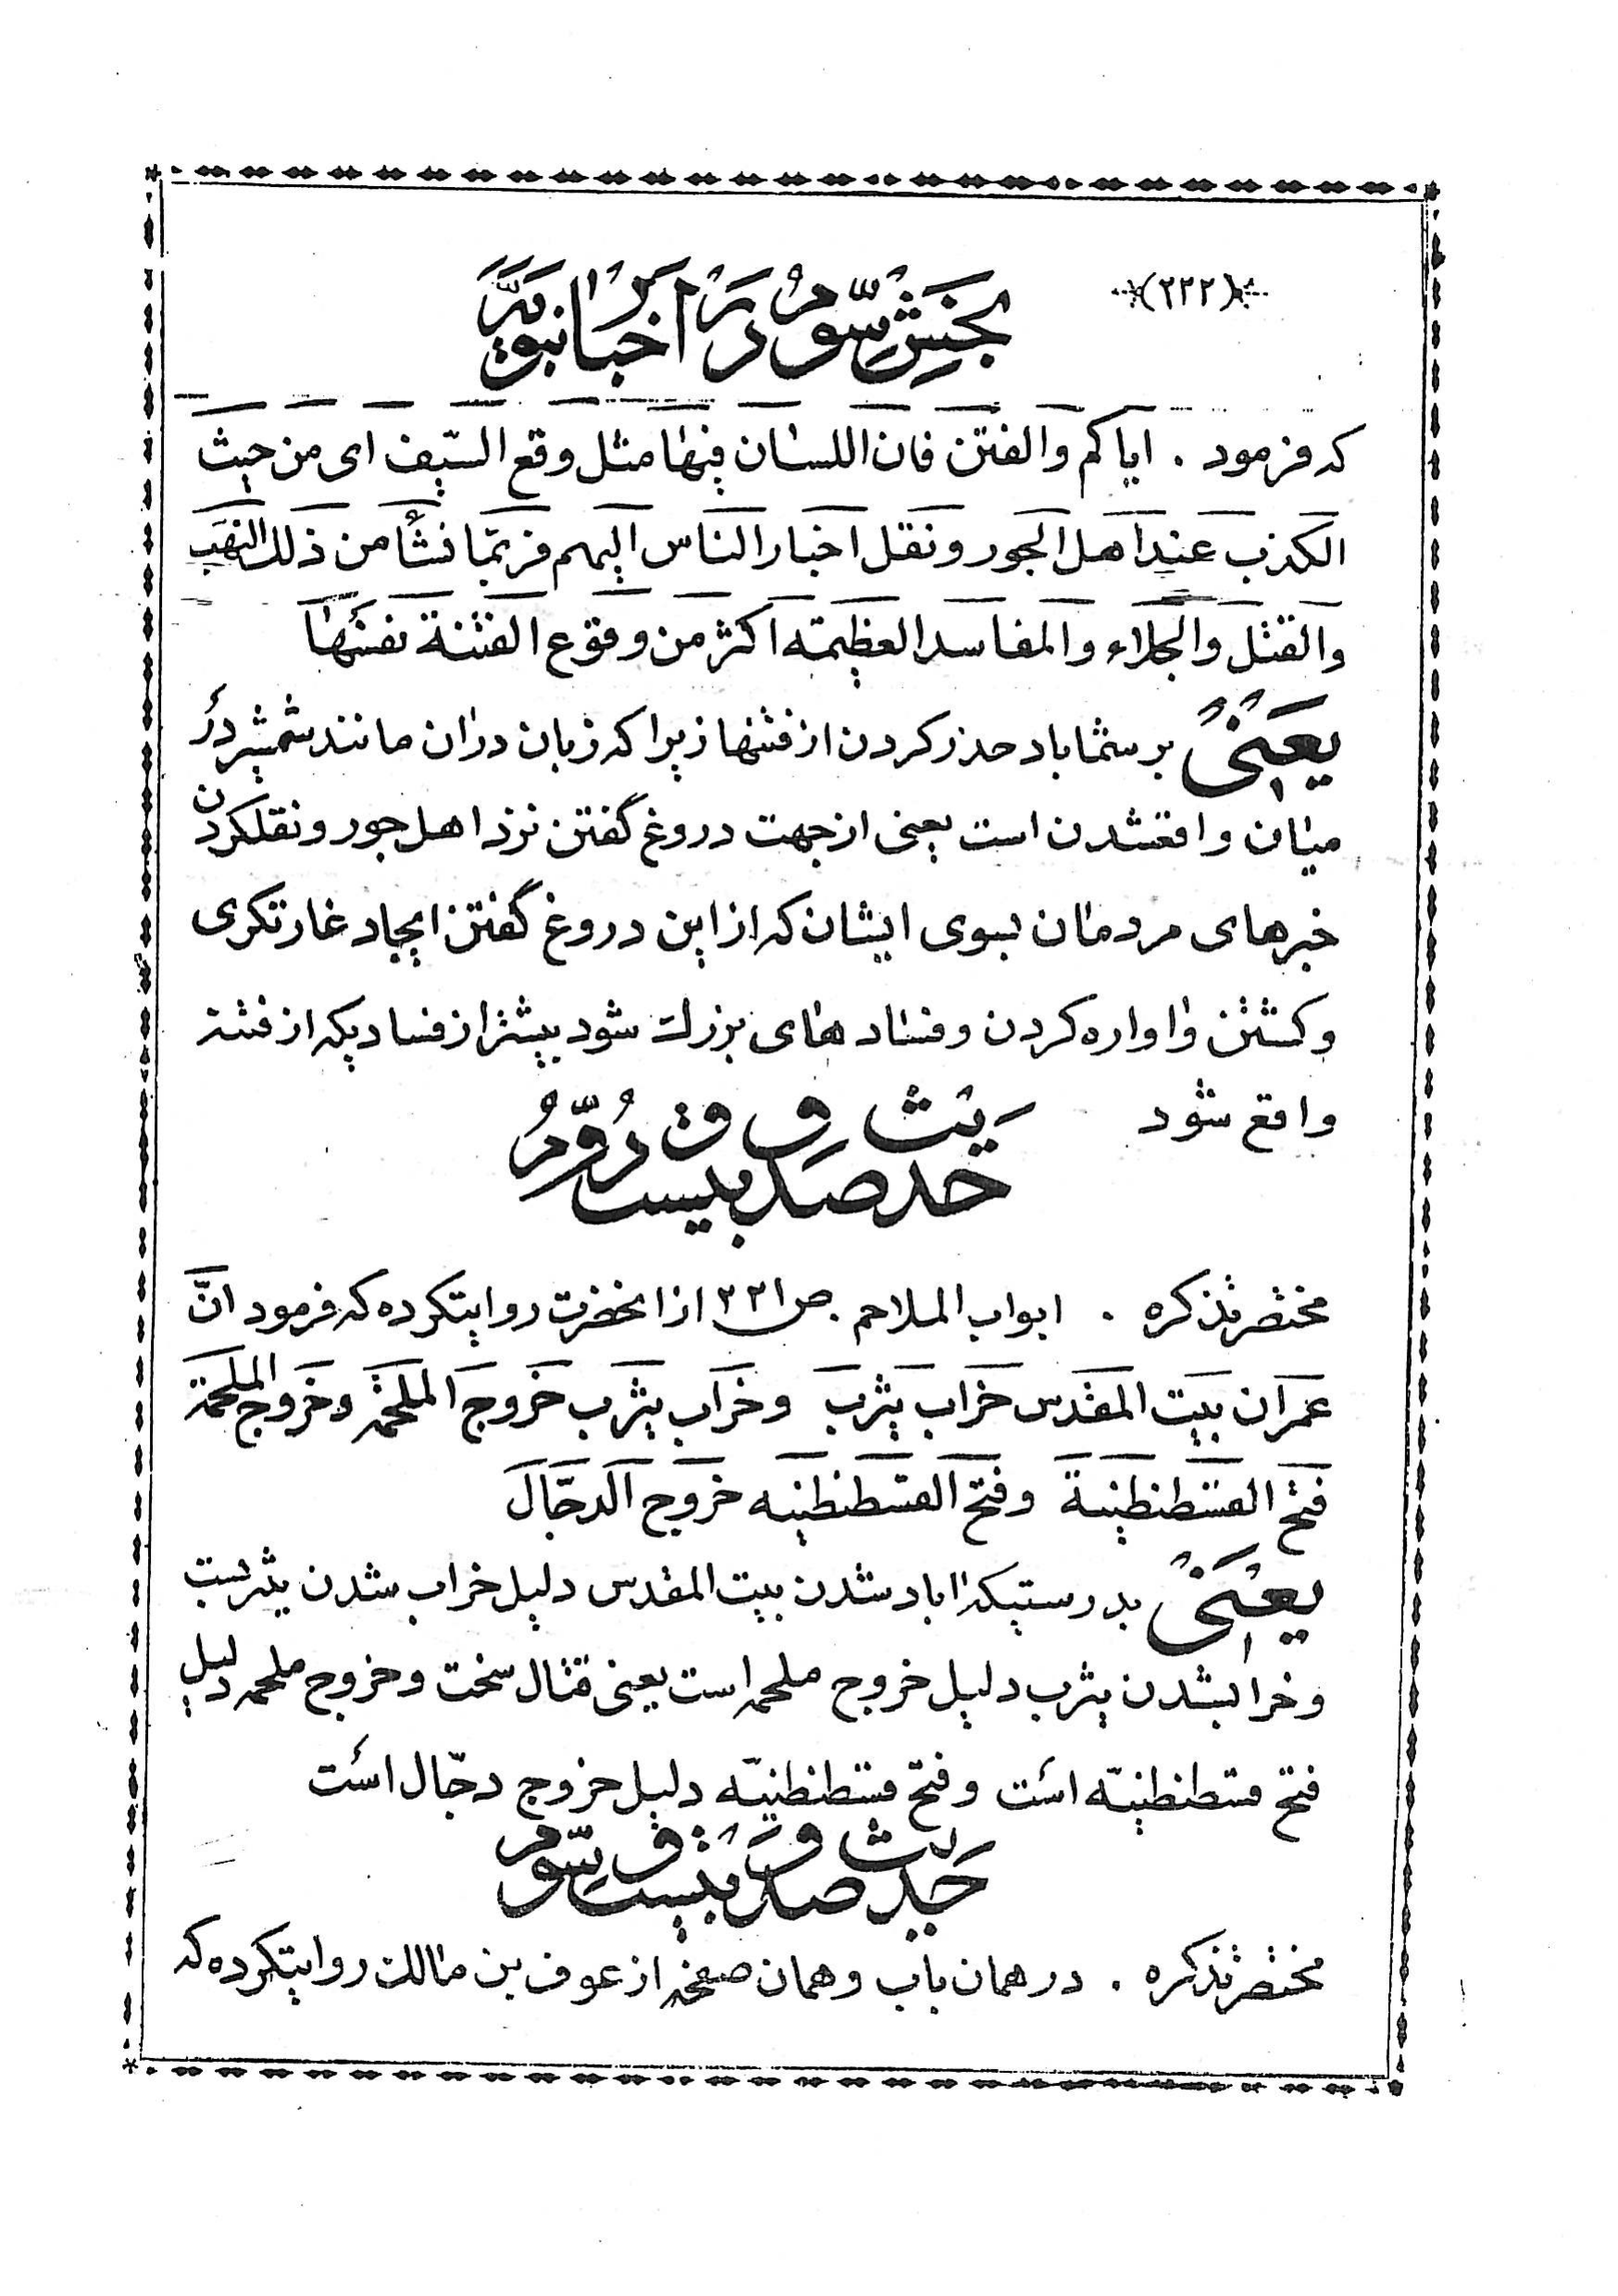 (۲۲۲)
بخش سوم در اخبار نبویه
که فرمود . ایاکم والفتن فان اللسان فیها مثل وقع السّیف ای من حیث
الکذب عند اهل الجور ونقل اخبار الناس الیهم فربّما نشأ من ذلک النهب
والقتل والجلاء والمفاسد العظیمته اکثر من وقوع الفتنة نفسها
یعنی بر شما باد حذر کردن از فتنها زیرا که زبان دران مانند شمشیر در
میان واقعشدن است یعنی از جهت دروغ گفتن نزد اهل جور و نقلکردن
خبرهای مردمان بسوی ایشان که از این دروغ گفتن ایجاد غارتکری
وکشتن واواره کردن وفساد های بزرك شود بیشتر از فسادیکه از فتنه
واقع شود
حدیث صد و بیست و دوّم
مختصر تذکره . ابواب الملاحم . ص ۲۲۱ از انحضرت روایتکرده که فرمود انّ
عمران بیت المقدس خراب یثرب وخراب یثرب خروج الملحمه وخروج الملحمة
فتح القسطنطینیة وفتح القسطنطنیه خروج الدجّال
یعنی بدرستیکه اباد شدن بیت المقدس دلیل خراب شدن یثربست
وخرابشدن یثرب دلیل خروج ملحمه است یعنی قتال سخت وخروج ملحمه دلیل
فتح قسطنطینیّه است وفتح قسطنطینیّه دلیل خروج دجّال است
حدیث صد و بیست و سوّم
مختصر تذکره . در همان باب وهمان صفحه از عوف بن مالك روایتکرده که